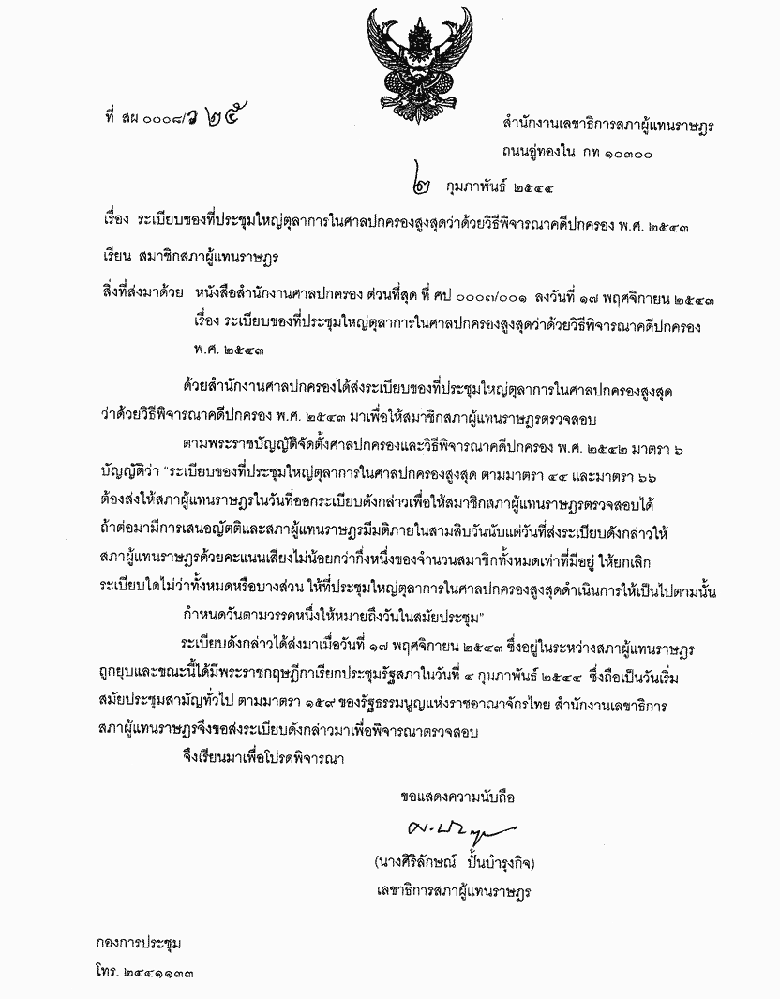 ที่ สผ ๐๐๐๘/ว ๒๕
สำนักงานเลขาธิการสภาผู้แทนราษฎร
ถนนอู่ทองใน กท ๑๐๓๐๐
๒ กุมภาพันธ์ ๒๕๔๔
เรื่อง ระเบียบของที่ประชุมใหญ่ตุลาการในศาลปกครองสูงสุดว่าด้วยวิธีพิจารณาคดีปกครอง พ.ศ. ๒๕๔๓
เรียน สมาชิกสภาผู้แทนราษฎร
สิ่งที่ส่งมาด้วย หนังสือสำนักงานศาลปกครอง ด่วนที่สุด ที่ ศป ๐๐๐๓/๐๐๑ ลงวันที่ ๑๗ พฤศจิกายน ๒๕๔๓
เรื่อง ระเบียบของที่ประชุมใหญ่ตุลาการในศาลปกครองสูงสุดว่าด้วยวิธีพิจารณาคดีปกครอง
พ.ศ. ๒๕๔๓
ด้วยสำนักงานศาลปกครองได้ส่งระเบียบของที่ประชุมใหญ่ตุลาการในศาลปกครองสูงสุด
ว่าด้วยวิธีพิจารณาคดีปกครอง พ.ศ. ๒๕๔๓ มาเพื่อให้สมาชิกสภาผู้แทนราษฎรตรวจสอบ
ตามพระราชบัญญัติจัดตั้งศาลปกครองและวิธีพิจารณาคดีปกครอง พ.ศ. ๒๕๔๒ มาตรา ๖
บัญญัติว่า "ระเบียบของที่ประชุมใหญ่ตุลาการในศาลปกครองสูงสุด ตามมาตรา ๔๔ และมาตรา ๖๖
ต้องส่งให้สภาผู้แทนราษฎรในวันที่ออกระเบียบดังกล่าวเพื่อให้สมาชิกสภาผู้แทนราษฎรตรวจสอบได้
ถ้าต่อมามีการเสนอญัตติและสภาผู้แทนราษฎรมีมติภายในสามสิบวันนับแต่วันที่ส่งระเบียบดังกล่าวให้
สภาผู้แทนราษฎรด้วยคะแนนเสียงไม่น้อยกว่ากึ่งหนึ่งของจำนวนสมาชิกทั้งหมดเท่าที่มีอยู่ ให้ยกเลิก
ระเบียบใดไม่ว่าทั้งหมดหรือบางส่วน ให้ที่ประชุมใหญ่ตุลาการในศาลปกครองสูงสุดดำเนินการให้เป็นไปตามนั้น
กำหนดวันตามวรรคหนึ่งให้หมายถึงวันในสมัยประชุม"
ระเบียบดังกล่าวได้ส่งมาเมื่อวันที่ ๑๗ พฤศจิกายน ๒๕๔๓ ซึ่งอยู่ในระหว่างสภาผู้แทนราษฎร
ถูกยุบและขณะนี้ได้มีพระราชกฤษฎีกาเรียกประชุมรัฐสภาในวันที่ ๔ กุมภาพันธ์ ๒๕๔๔ ซึ่งถือเป็นวันเริ่ม
สมัยประชุมสามัญทั่วไป ตามมาตรา ๑๕๙ ของรัฐธรรมนูญแห่งราชอาณาจักรไทย สำนักงานเลขาธิการ
สภาผู้แทนราษฎรจึงขอส่งระเบียบดังกล่าวมาเพื่อพิจารณาตรวจสอบ
จึงเรียนมาเพื่อโปรดพิจารณา
ขอแสดงความนับถือ
(นางศิริลักษณ์ ปั้นบำรุงกิจ)
เลขาธิการสภาผู้แทนราษฎร
กองการประชุม
โทร. ๒๔๔๑๑๓๓